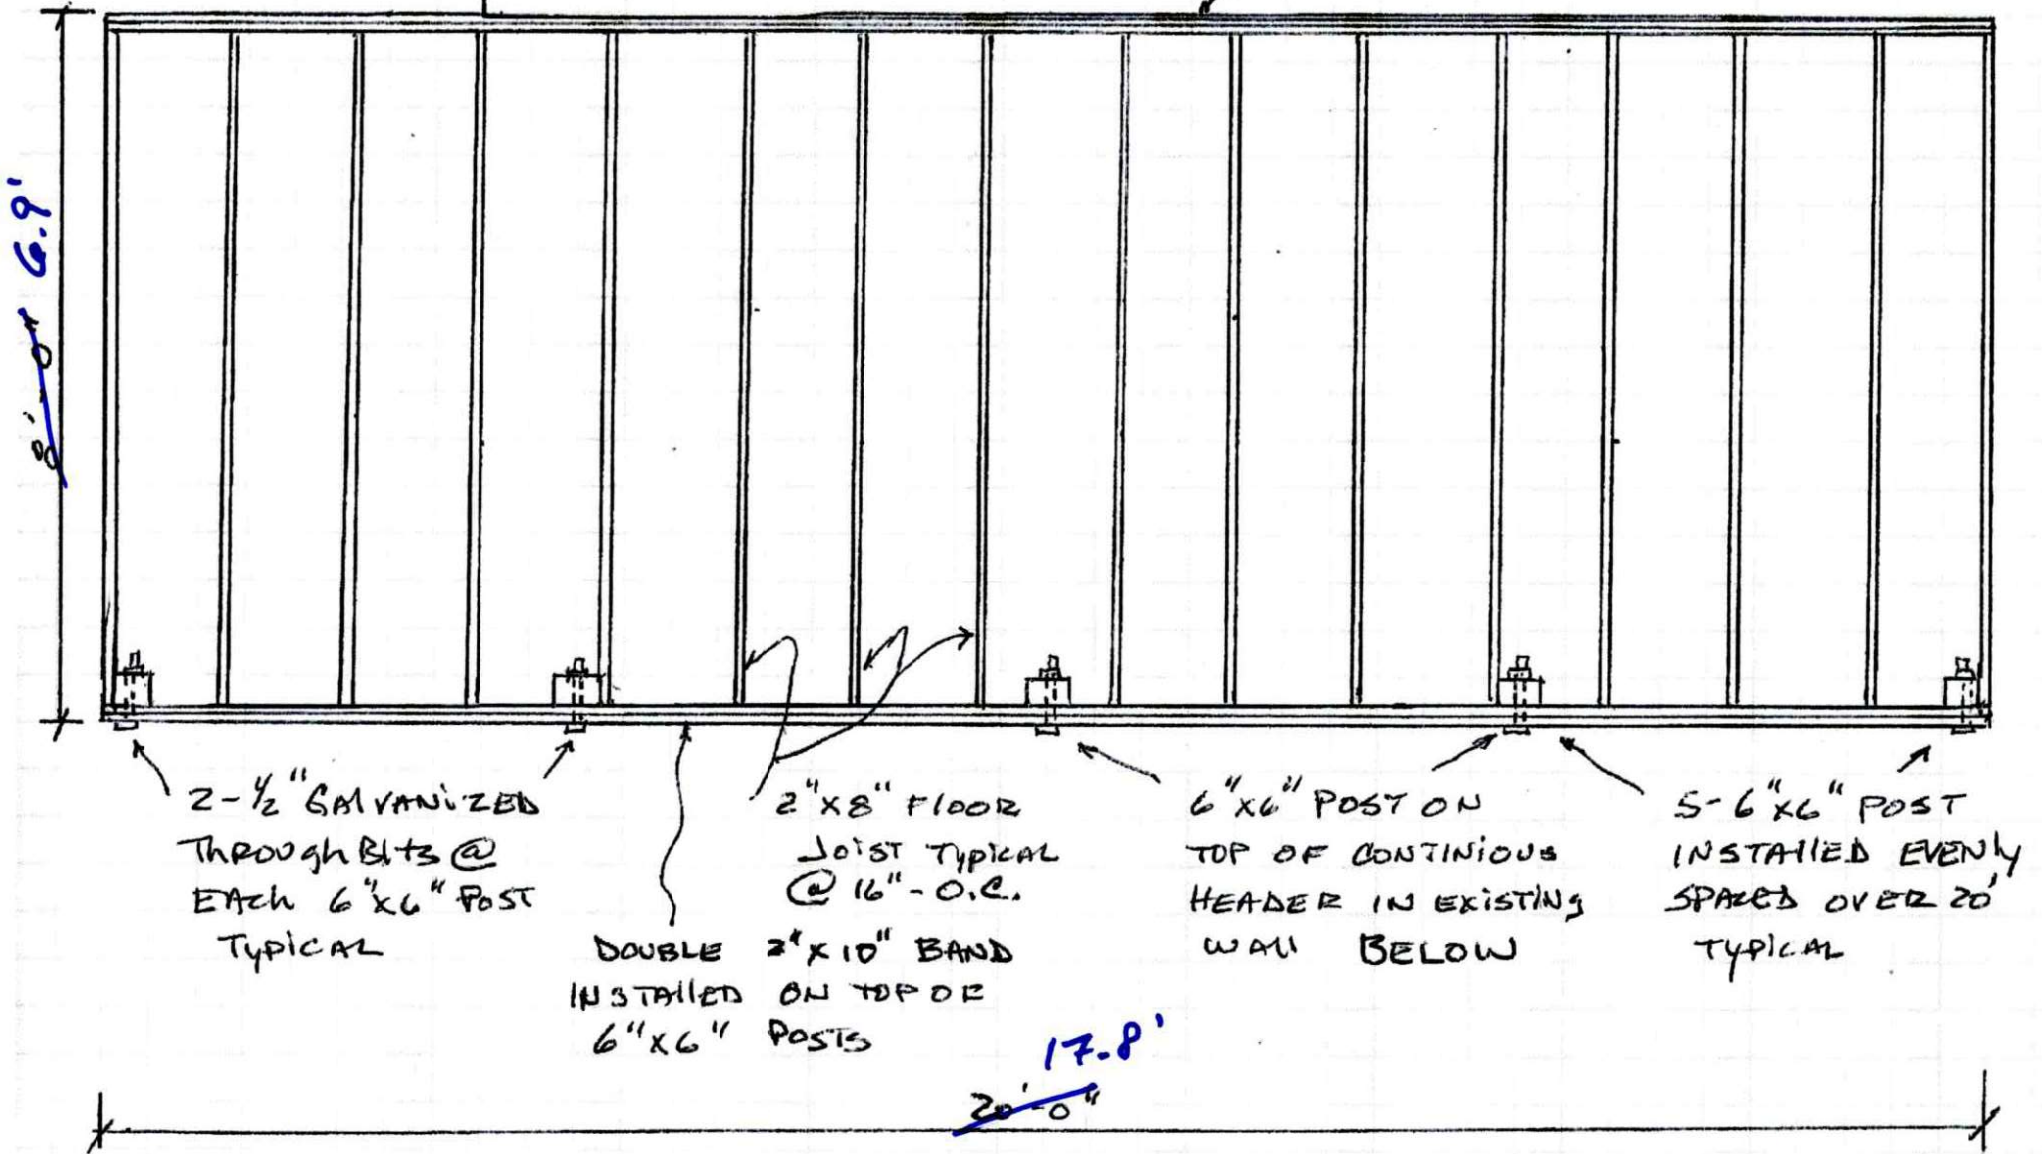 8'-0" 6.9'
2-1/2" GALVANIZED
THROUGH BLTS @
EACH 6"X6" POST
TYPICAL
DOUBLE 2"X10" BAND
INSTALLED ON TOP OF
6"X6" POSTS
2"X8" FLOOR
JOIST TYPICAL
@ 16"-O.C.
6"X6" POST ON
TOP OF CONTINIOUS
HEADER IN EXISTING
WALL BELOW
5-6"X6" POST
INSTALLED EVENLY
SPACED OVER 20'
TYPICAL
17.8'
20'-0"